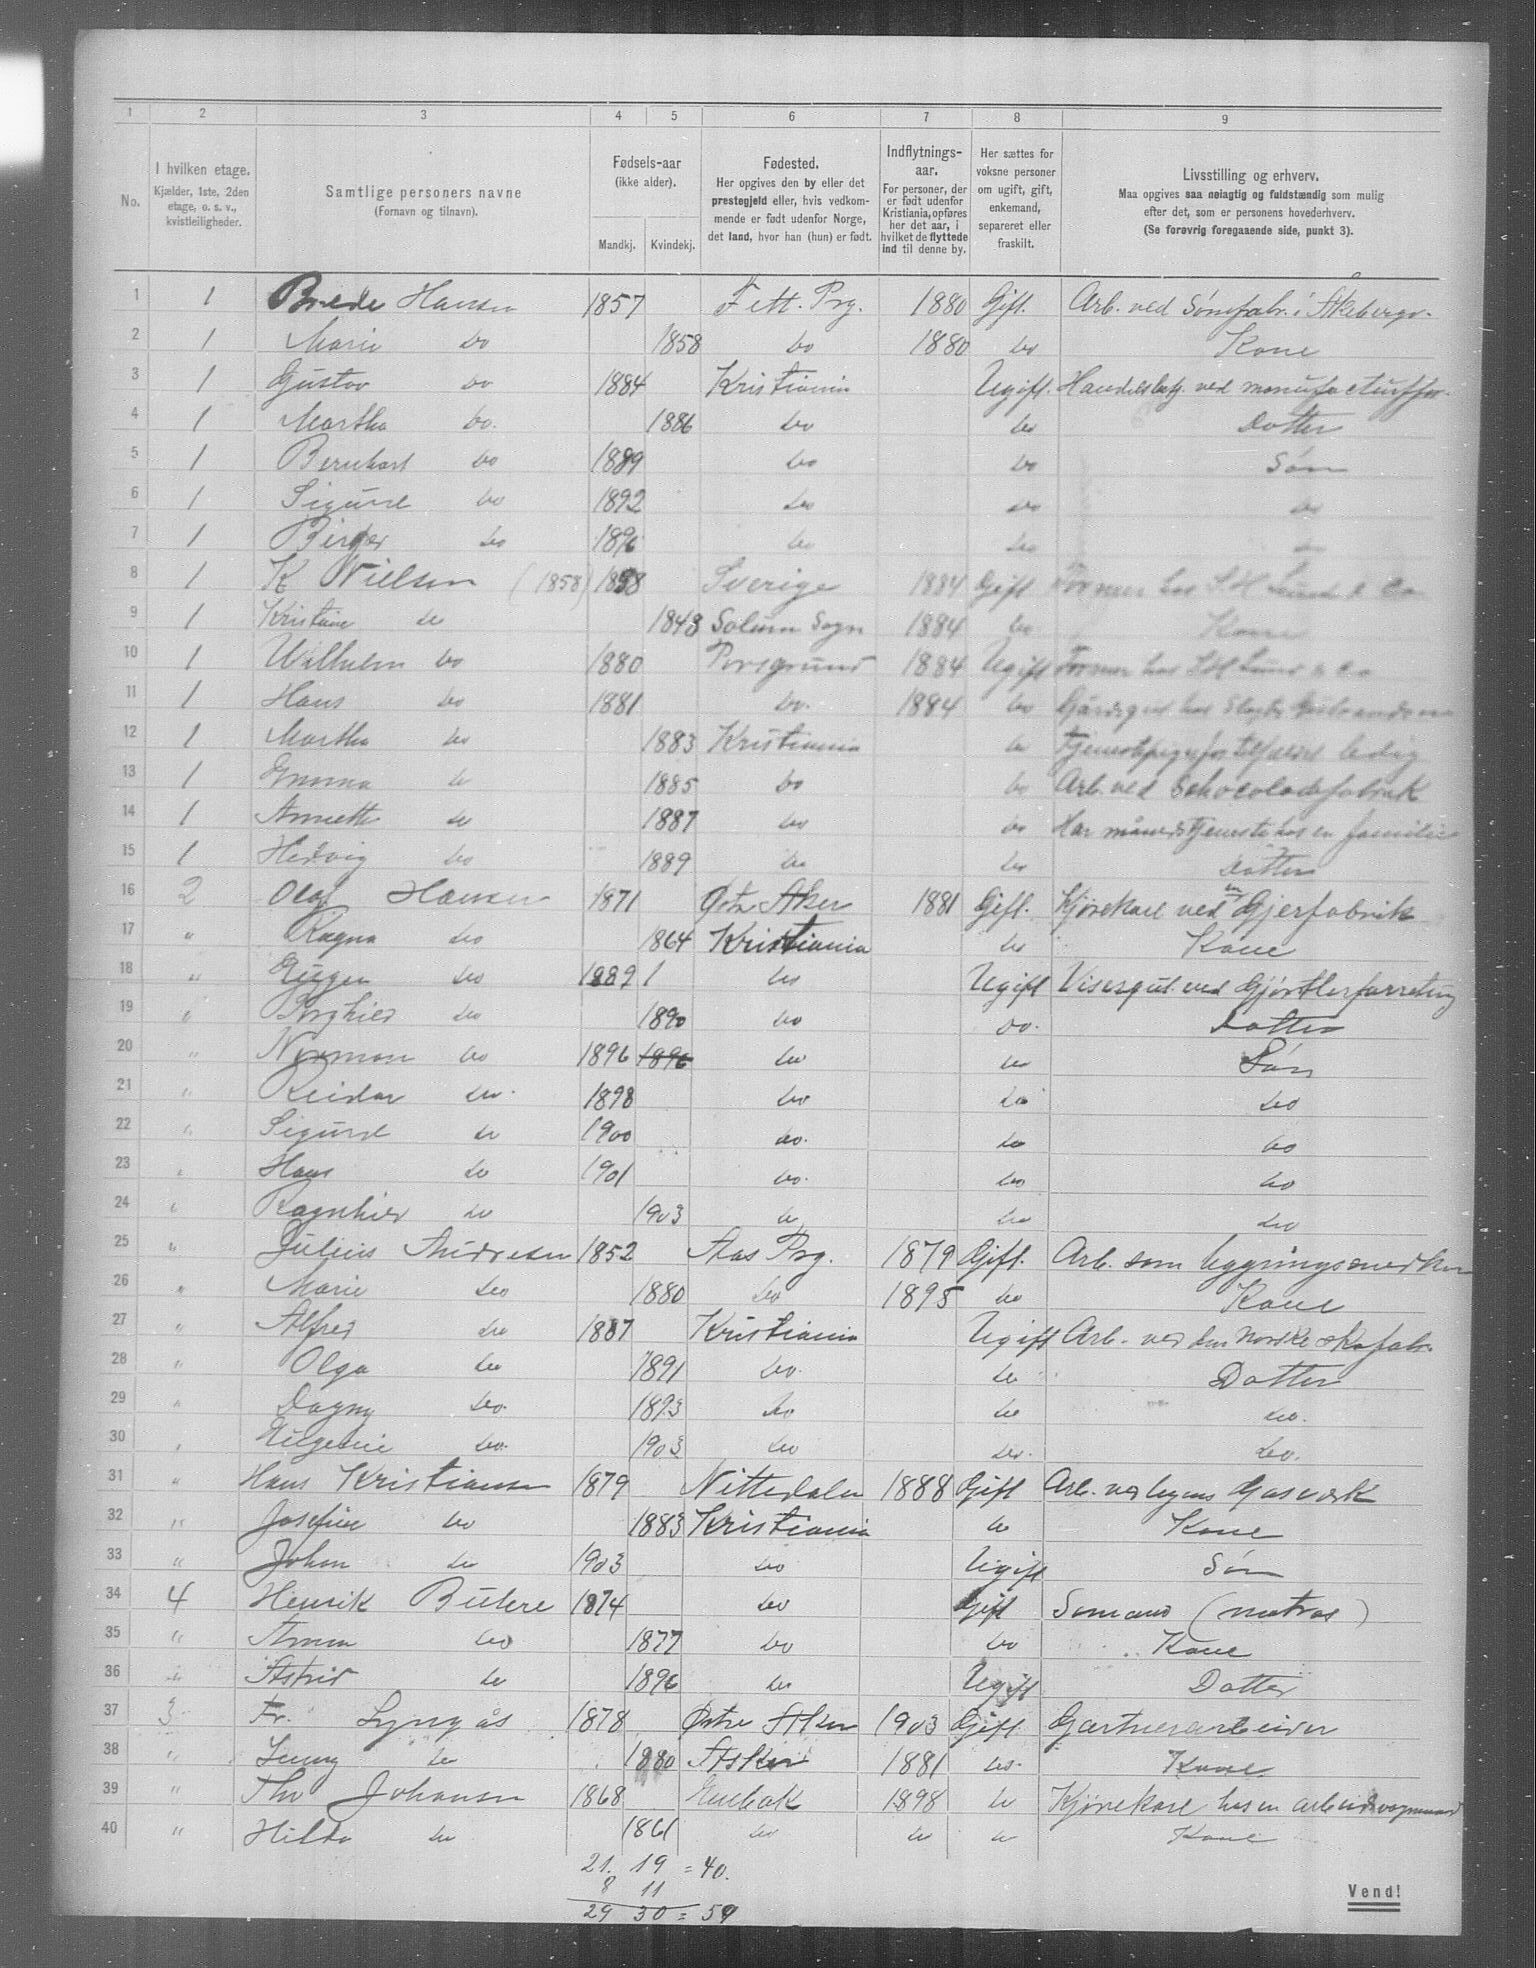 1 2 3 4 5 6 7 8 9
No. I hvilken etage. Kjælder, 1ste, 2den etage, o. s. v., kvistleiligheder. Samtlige personers navne (Fornavn og tilnavn). Fødsels-aar (ikke alder). Mandkj. Kvindekj. Fødested. Her opgives den by eller det prestegjeld eller, hvis vedkommende er født udenfor Norge, det land, hvor han (hun) er født. Indflytnings-aar. For personer, der er født udenfor Kristiania, opføres her det aar, i hvilket de flyttede ind til denne by. Her sættes for voksne personer om ugift, gift, enkemand, separeret eller fraskilt. Livsstilling og erhverv. Maa opgives saa nøiagtig og fuldstændig som mulig efter det, som er personens hovederhverv. (Se forøvrig foregaaende side, punkt 3).
1 1 Brede Hansen 1857 Fett. Prg. 1880 Gift. Arb. ved i Åkebergv.
2 1 Marie do 1858 do 1880 do Kone
3 1 Gustav do 1884 Kristiania Ugift. ved manufacturffor.
4 1 Martha do. 1886 do do Dotter
5 1 Bernhart do 1889 do do Søn
6 1 Sigurd do 1892 do do do
7 1 Birger do 1896 do do do
8 1 K Nielsen (1858) 1858 Sverige 1884 Gift Former hos S.H Lund & Co
9 1 Kristine do 1848 Solum Sogn 1884 do Kone
10 1 Wilhelm do 1880 Porsgrund 1884 Ugift Former hos S.H Lund & Co
11 1 Hans do 1881 do. 1884 do Gårdsgut hos
12 1 Martha do 1883 Kristiania do Tjenestepige for tilfælde ledig
13 1 Emma do 1885 do do Arb. ved Schocoladefabrik
14 1 Annette do 1887 do do Har månedstjeneste hos en familie
15 1 Hedvig do 1889 do do Dotter
16 2 Olaf Hansen 1871 Østr Aker 1881 Gift. Kjørekarl ved en Gjerfabrik
17 " Ragna do 1864 Kristiania do Kone
18 " Eugen do 1889 1 do Ugift Visergut ved Gjørtlerforretning
19 " Borghild do 1890 do do. Dotter
20 " Norman do 1896 1896 do do Søn
21 " Reidar do. 1898 do do do
22 " Sigurd do 1900 do. do do
23 " Hans do 1901 do. do do
24 " Ragnhild do 1903 do do do
25 " Julius Andresen 1852 Aas Prg. 1879 Gift. Arb. som bygningssnedker
26 " Marie do 1880 do 1895 do Kone
27 " Alfred do 1887 Kristiania Ugift Arb. ved den Norske skofabr.
28 " Olga do 1891 do. do Dotter
29 " Dagny do. 1893 do do do.
30 " Eugenie do. 1903 do do. do.
31 " Hans Kristiansen 1879 Nittedalen 1888 Gift Arb. ved byens Gasværk
32 " Josefine do 1883 Kristiania do Kone
33 " Johan do 1903 do Ugift Søn
34 4 Henrik Bülere 1874 do Gift Sømand (matros)
35 " Anna do 1877 do do Kone
36 " Astrid do 1896 do Ugift Dotter
37 3 Fr. Lyngås 1878 Østre Aker 1903 Gift Gartnerarbeider
38 " Jenny do 1880 Asker 1881 do. Kone
39 " Thv Johansen 1868 Enebak 1898 do Kjørekarl hos en arbeidsvognmand
40 " Hilda do 1861 do do do Kone
21. 19 = 40.
8 11
29 30 = 59
Vend!